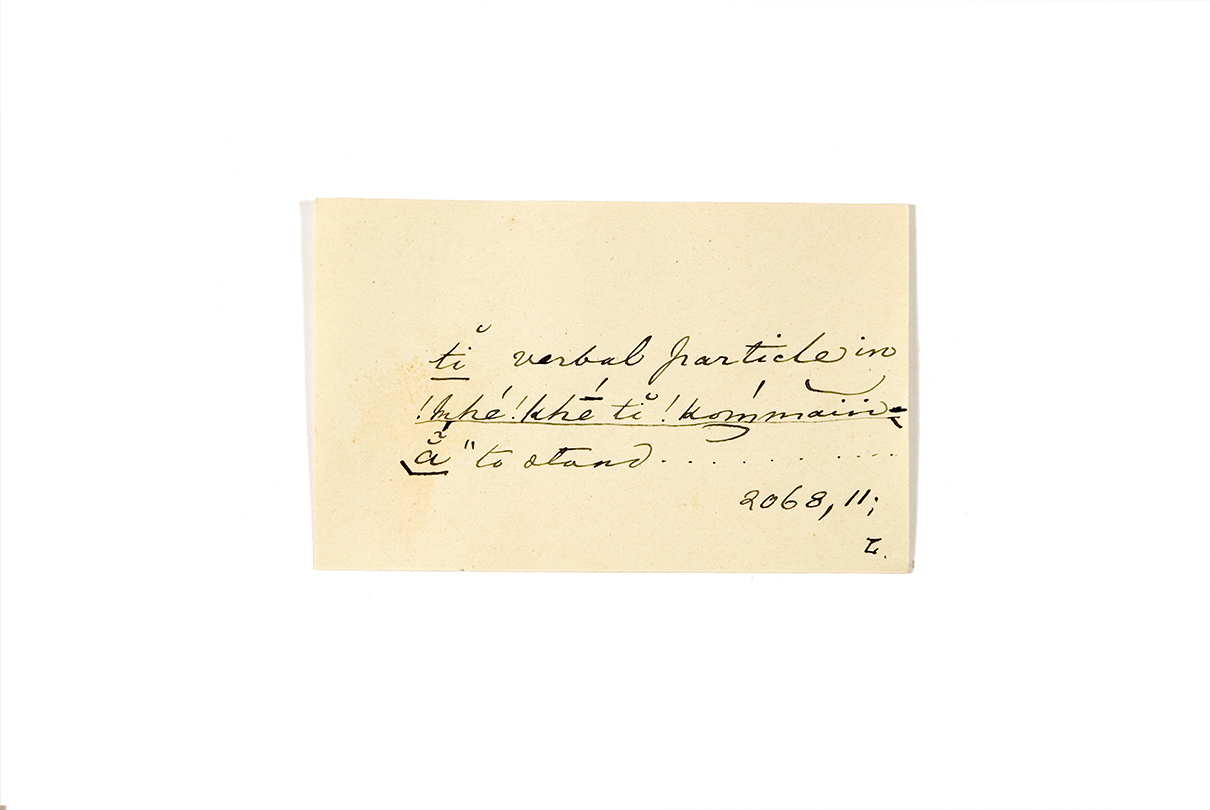 tĭ verbal particle in
!khé !khé tĭ !kómmāin=
ã̆ "to stand . . . . . . . . . .
2068, 11;
L.